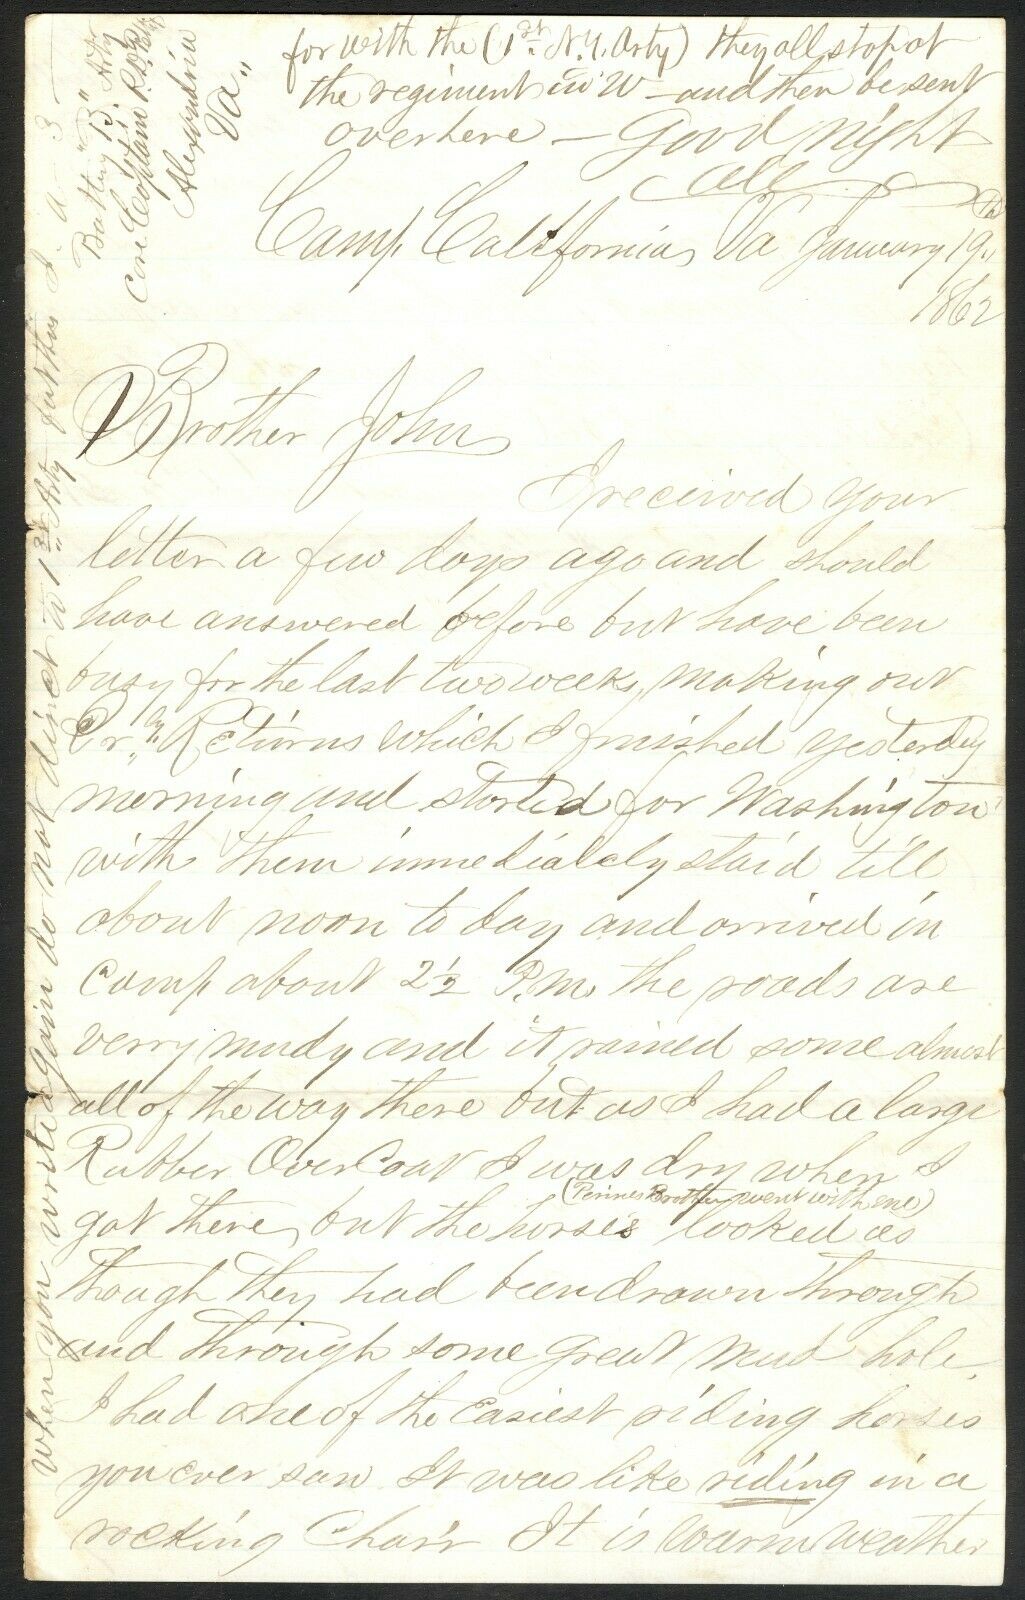 for with the (1st. N.Y. Arty) they all stop at
the regiment in W – and then be sent
over here – Good night
Camp California, Va January 19th,
1862
Brother John
I received your
letter a few days ago and should
have answered before but have been
busy for the last two weeks, making out
Qr"ly" Returns which I finished yesterday
morning and started for Washington
with them immediately staid till
about noon to day and arrived in
camp about 2½ P.M. the roads are
verry mudy and it rained some almost
all of the way there but as I had a large
Rubber Over Coat I was dry when I
(Brother went with me)
got there, but the horses looked as
though they had been drawn through
and through some great mud hole.
I had one of the easiest riding horses
you ever saw It was like riding in a
rocking Chair It is warm weather
when you write again do not direct to 1st Arty but thus
Battery "B" Arty
Care Captain
Alexandria
Va"